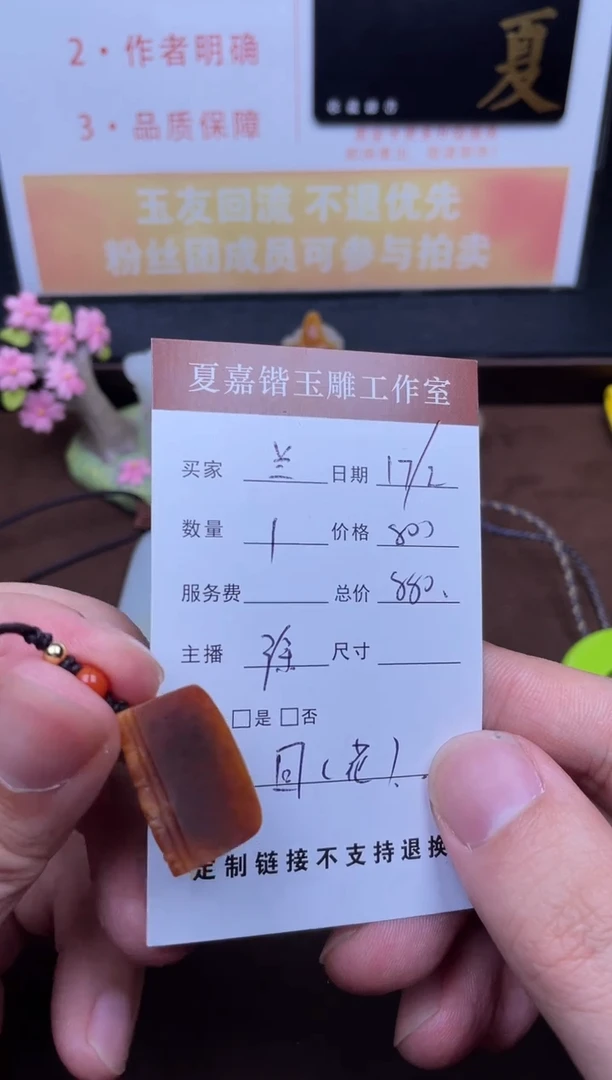 2·作者明确
3·品质保障
夏
玉友回流 不退优先
粉丝团成员可参与拍卖
夏嘉锴玉雕工作室
买家 兰 日期 17/2
数量 1 价格 800
服务费 总价 880.
主播 徐 尺寸
□是 □否
回(花)
定制链接不支持退换